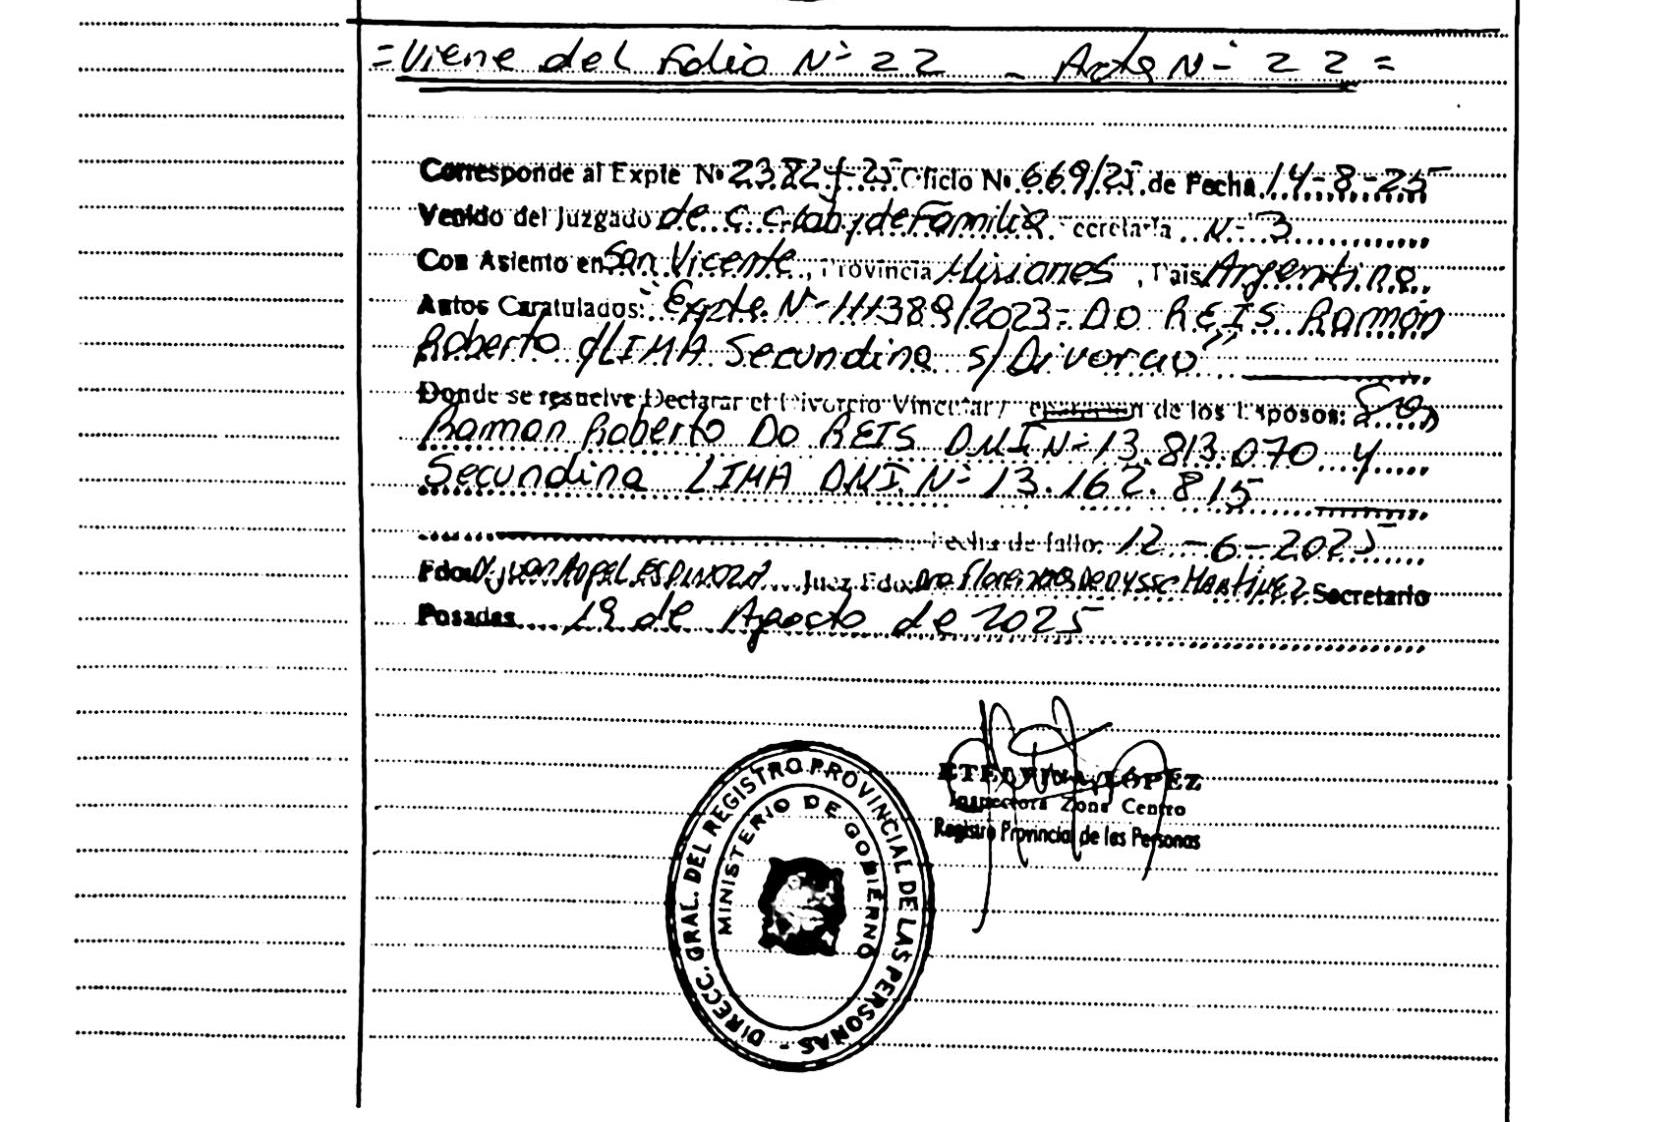 =Viene del Folio Nº 22 - Acta Nº 22=
Corresponde al Expte Nº 2382 -25 Oficio Nº 669/25 de Fecha 14-8-25
Venido del Juzgado de C.C. Lab. y de Familia Secretaria Nº 3
Con Asiento en San Vicente, Provincia Misiones, Pais Argentina
Autos Caratulados: "Expte Nº 111389/2023- DO REIS Ramón
Roberto c/LIMA Secundina s/Divorcio"
Donde se resuelve Declarar el Divorcio Vincular / de los Esposos:
Ramon Roberto DO REIS DNI Nº 13.813.070 y
Secundina LIMA DNI Nº 13.162.815
Fecha de fallo: 12-6-2025
Fdo. Juan Angel ESPINOZA Juez Fdo: Dra Denysse MARTINEZ Secretario
Posadas 19 de Agosto de 2025
ETELVINA LOPEZ
Inspectora Zona Centro
Registro Provincial de las Personas
DIRECC. GRAL. DEL REGISTRO PROVINCIAL DE LAS PERSONAS -
MINISTERIO DE GOBIERNO